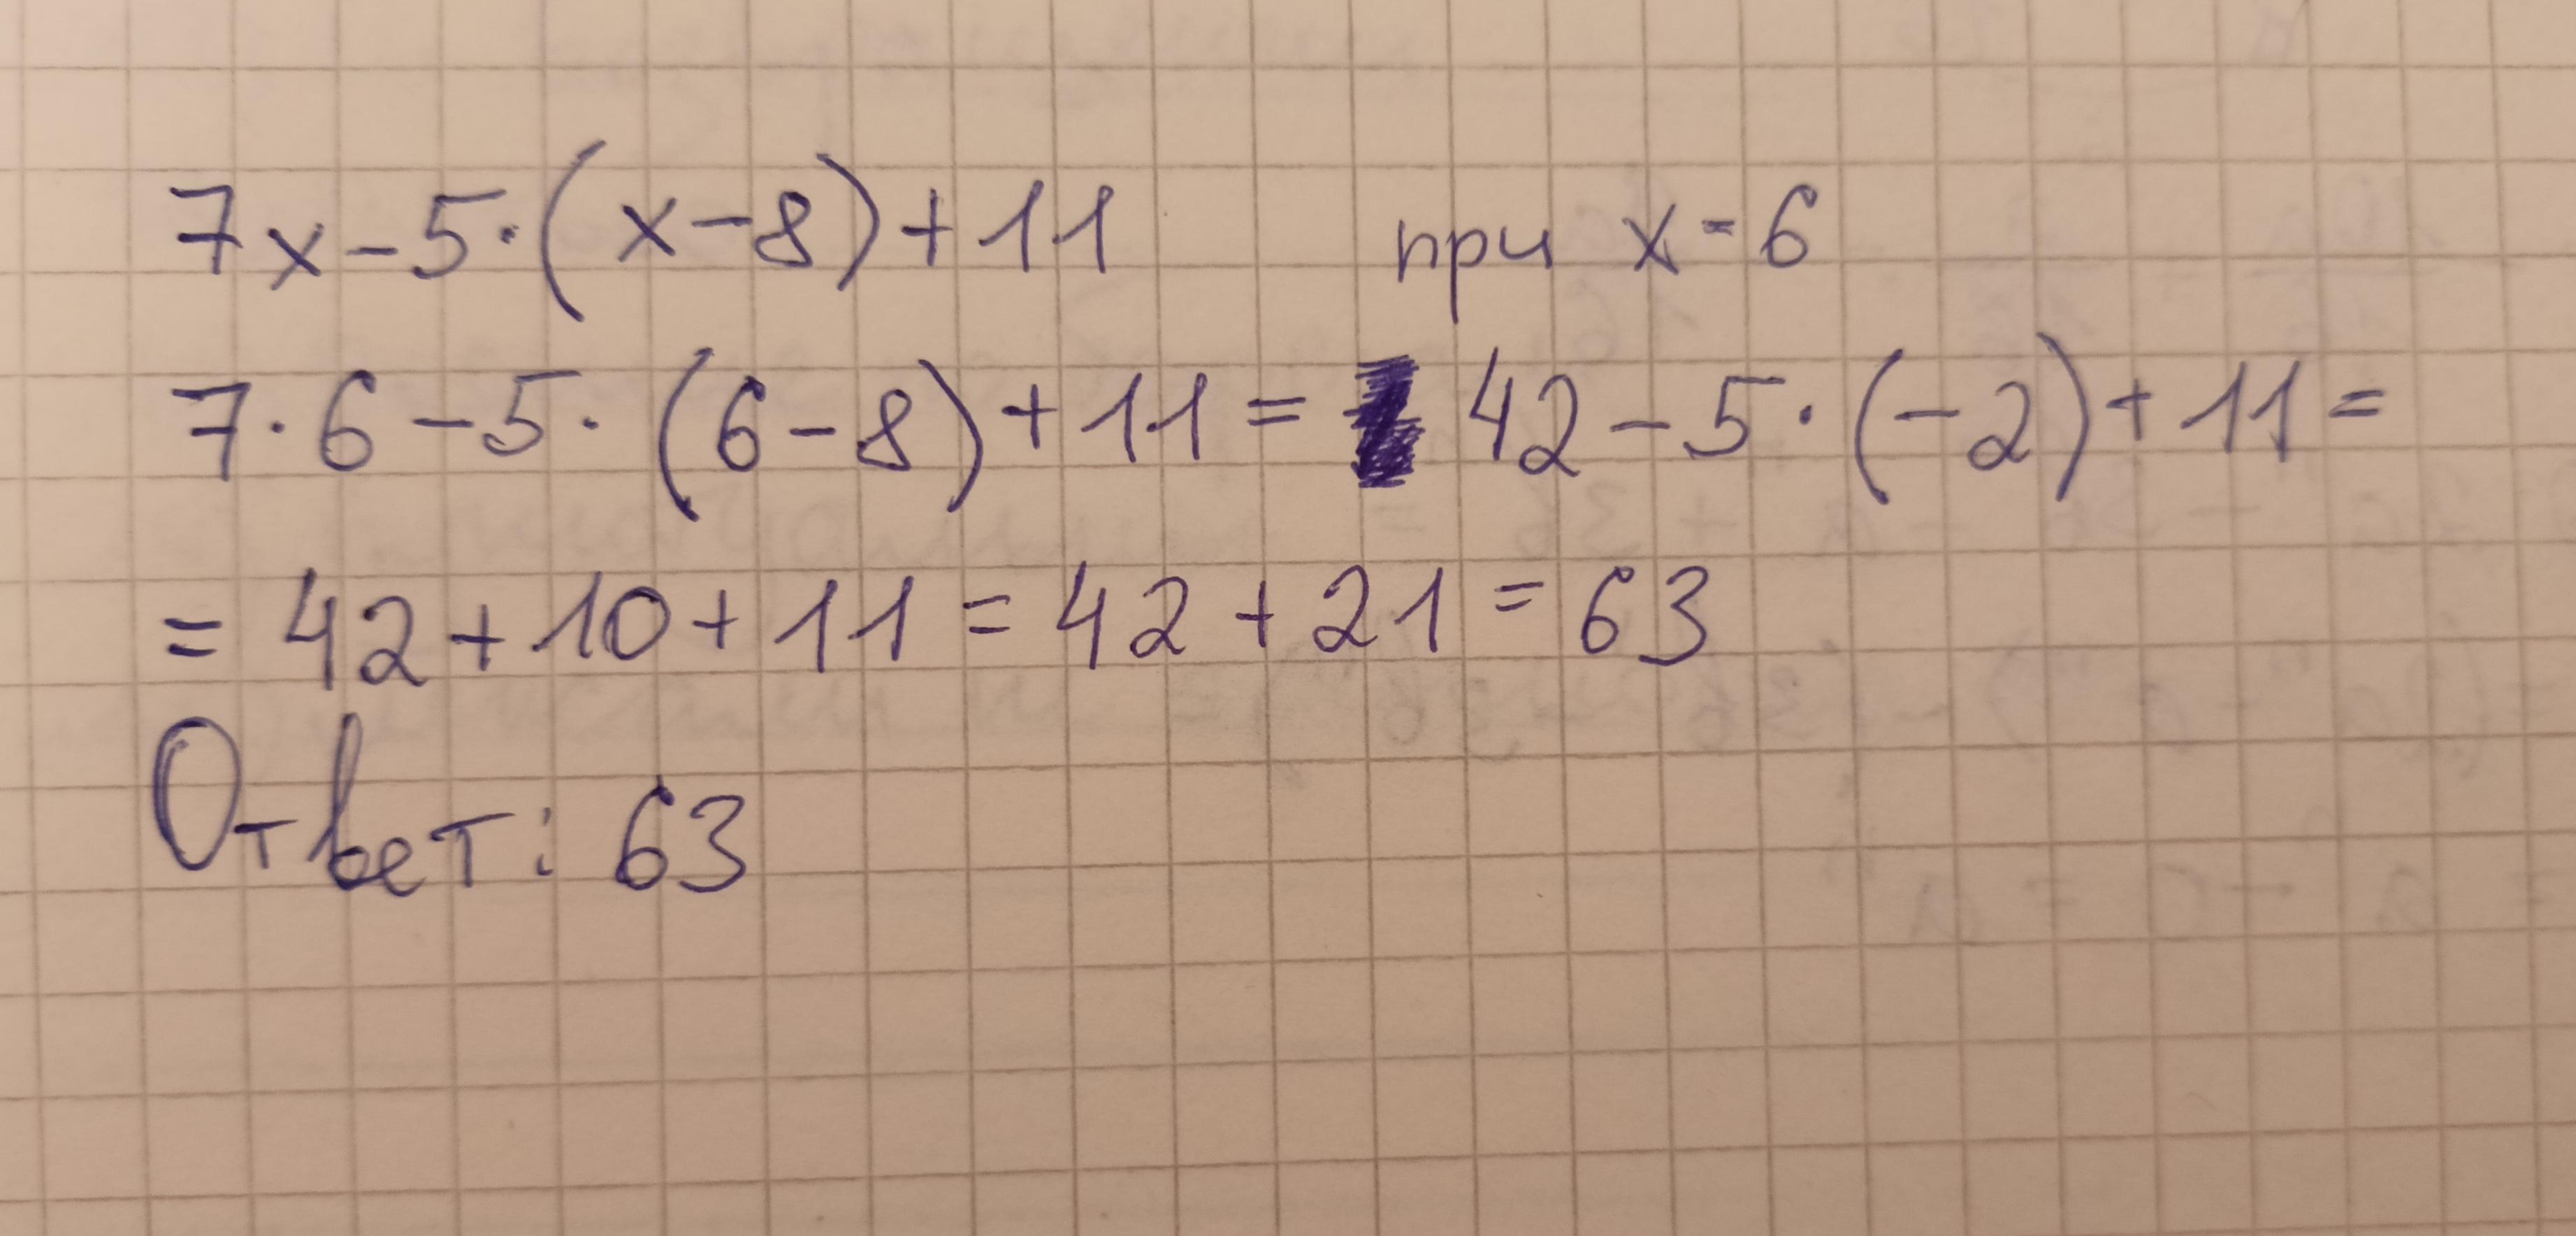 7x-5·(x-8)+11 при x=6
7·6-5·(6-8)+11= 42-5·(-2)+11=
=42+10+11=42+21=63
Ответ: 63